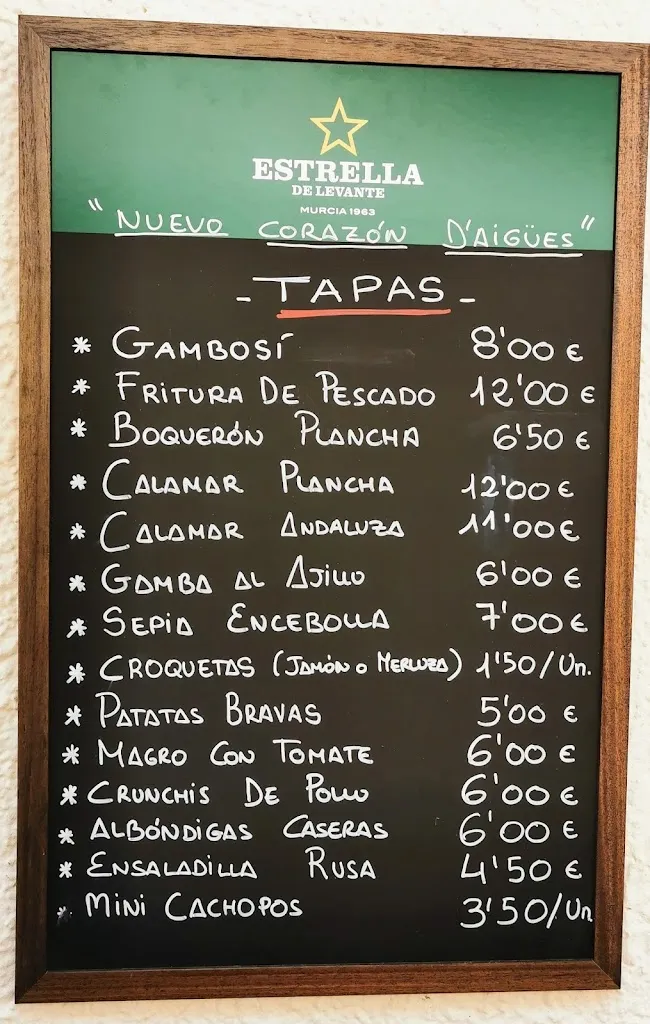 ESTRELLA
DE LEVANTE
MURCIA 1963
"NUEVO CORAZÓN D'AIGÜES"
- TAPAS -
* GAMBOSÍ 8'00 €
* FRITURA DE PESCADO 12'00 €
* BOQUERÓN PLANCHA 6'50 €
* CALAMAR PLANCHA 12'00 €
* CALAMAR ANDALUZA 11'00 €
* GAMBA AL AJILLO 6'00 €
* SEPIA ENCEBOLLA 7'00 €
* CROQUETAS (JAMÓN O MERLUZA) 1'50/Un.
* PATATAS BRAVAS 5'00 €
* MAGRO CON TOMATE 6'00 €
* CRUNCHIS DE POLLO 6'00 €
* ALBÓNDIGAS CASERAS 6'00 €
* ENSALADILLA RUSA 4'50 €
* MINI CACHOPOS 3'50/Un